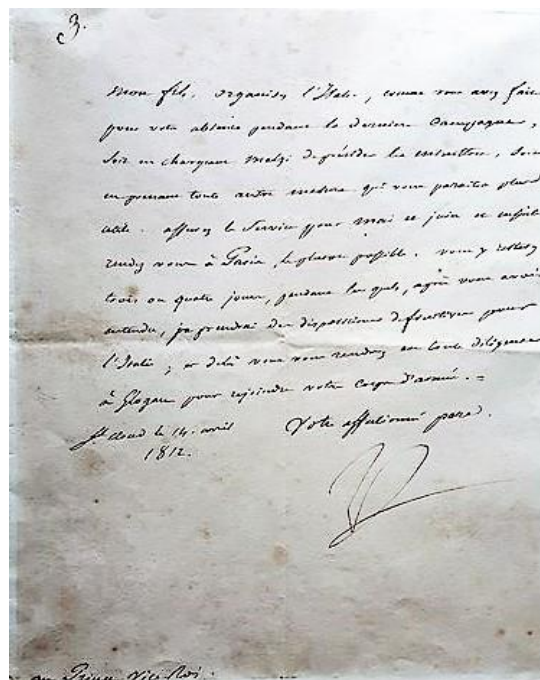 3.
Mon fils, organisez l'Italie, comme vous avez fait
pour votre absence pendant la derniere Campagne,
soit en chargeant Melzi de présider les ministres, soit
en prenant toute autre mesure qui vous paraitra plus
utile. assurez le Service pour mai et juin et ensuite
rendez vous à Paris, le plutot possible. vous y resterez
trois ou quatre jours, pendant les quels, après vous avoir
entendu, je prendrai des dispositions définitives pour
l'Italie ; et delà vous vous rendrez en toute diligence
à Glogau pour rejoindre votre Corps d'armée. =
Votre affectionné pere.
St cloud le 14. avril
1812.
au Prince Vice-Roi.